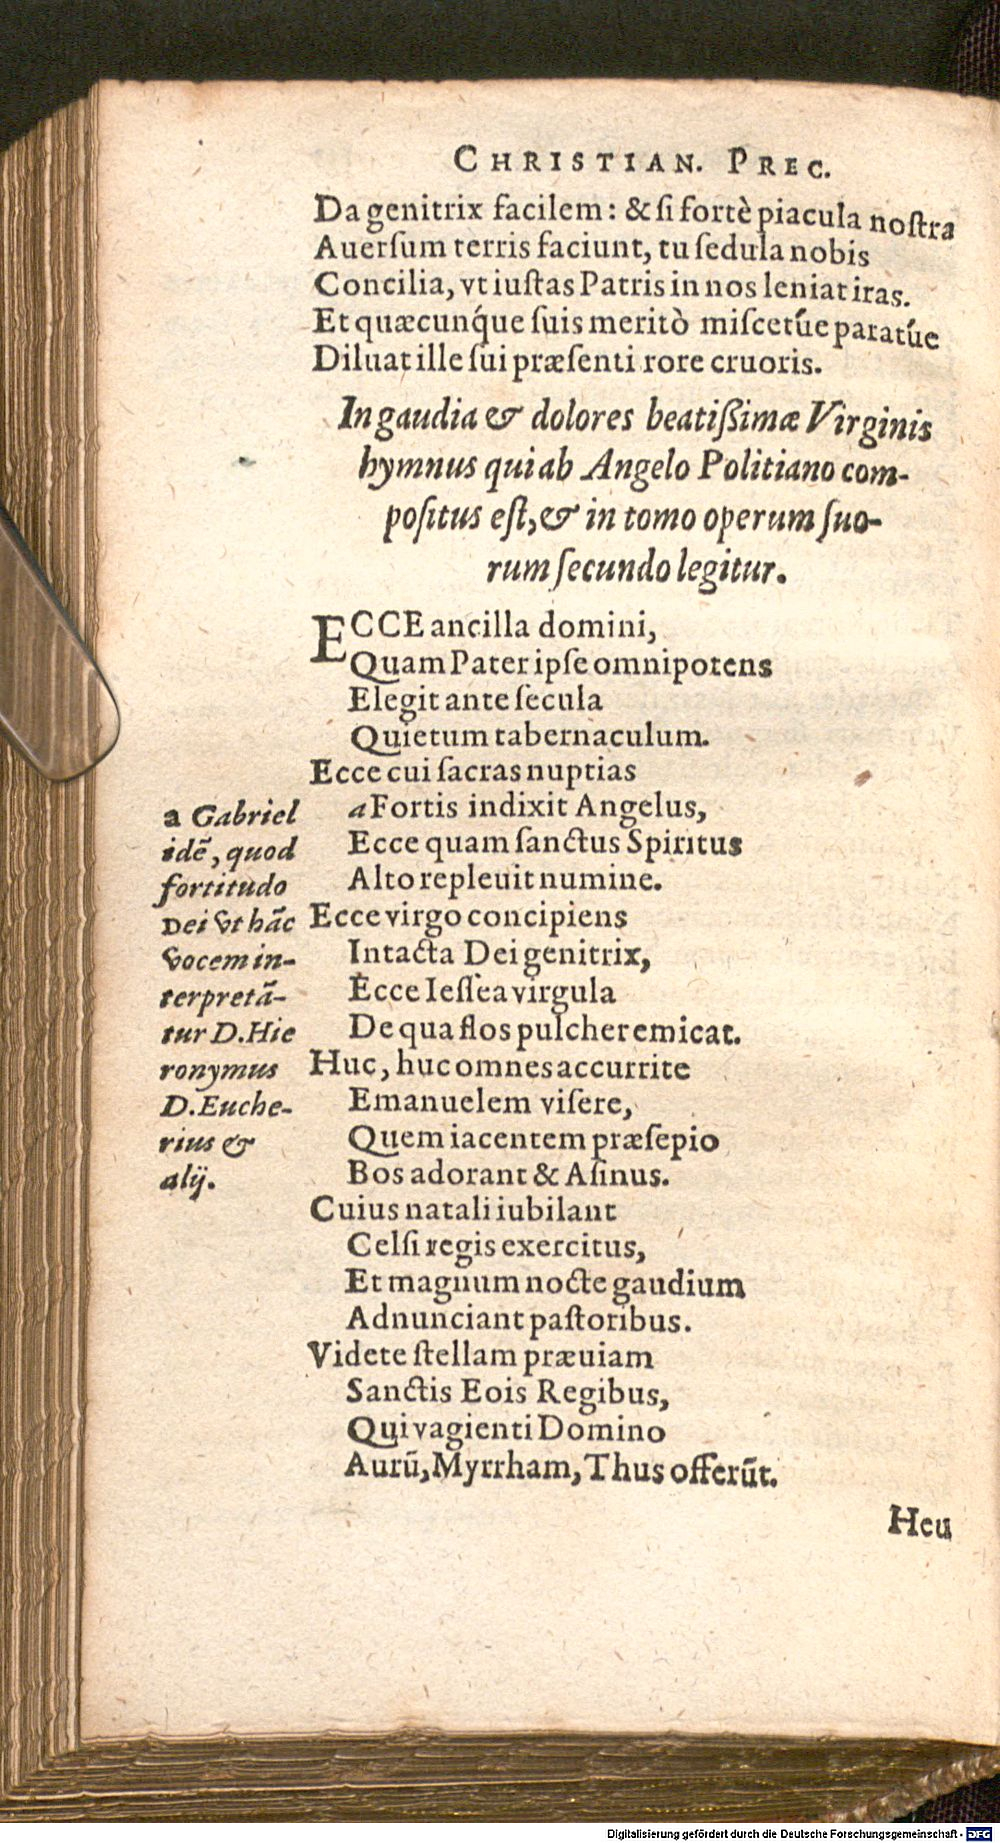 CHRISTIAN. PREC.
Da genitrix facilem: & ſi fortè piacula noſtra
Auerſum terris faciunt, tu ſedula nobis
Concilia, vt iuſtas Patris in nos leniat iras.
Et quæcunq́ue ſuis meritò miſcetúe paratúe
Diluat ille ſui præſenti rore cruoris.
In gaudia & dolores beatißimæ Virginis
hymnus qui ab Angelo Politiano com-
poſitus eſt, & in tomo operum ſuo-
rum ſecundo legitur.
ECCE ancilla domini,
Quam Pater ipſe omnipotens
Elegit ante ſecula
Quietum tabernaculum.
Ecce cui ſacras nuptias
a Fortis indixit Angelus,
Ecce quam ſanctus Spiritus
Alto repleuit numine.
Ecce virgo concipiens
Intacta Dei genitrix,
Ecce Ieſſea virgula
De qua flos pulcher emicat.
Huc, huc omnes accurrite
Emanuelem viſere,
Quem iacentem præſepio
Bos adorant & Aſinus.
Cuius natali iubilant
Celſi regis exercitus,
Et magnum nocte gaudium
Adnunciant paſtoribus.
Videte ſtellam præuiam
Sanctis Eois Regibus,
Qui vagienti Domino
Aurū, Myrrham, Thus offerūt.
a Gabriel
idẽ, quod
fortitudo
Dei vt hāc
vocem in-
terpretā-
tur D. Hie
ronymus
D. Euche-
rius &
alij.
Heu
Digitalisierung gefördert durch die Deutsche Forschungsgemeinschaft - DFG